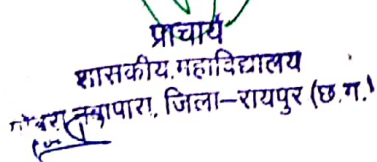 प्राचार्य
शासकीय महाविद्यालय
नवापारा, जिला–रायपुर (छ.ग.)